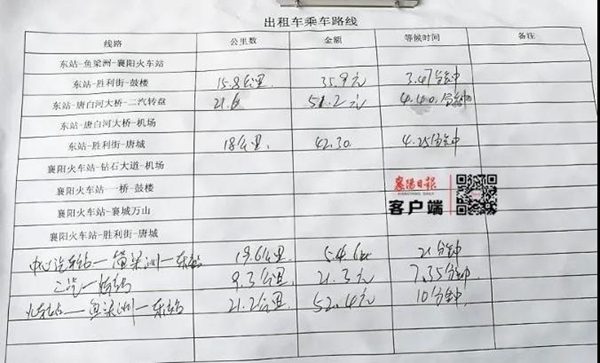 出租车乘车路线
线路 公里数 金额 等候时间 备注
东站-鱼梁洲-襄阳火车站
东站-胜利街-鼓楼 15.8公里 35.9元 3.47分钟
东站-唐白河大桥-二汽转盘 21.6 51.2元 4.40分钟
唐白河大桥-机场
东站-胜利街-唐城 18公里 42.30 4.25分钟
襄阳火车站-钻石大道-机场
襄阳火车站-一桥-鼓楼
襄阳火车站-襄城万山
襄阳火车站-胜利街-唐城
襄阳日报
客户端
中心汽车站—鱼梁洲—东站 19.6公里 21分钟
二汽— 9.3公里 21.3元 7.35分钟
东站—鱼梁洲—东站 21.2公里 52.4元 10分钟